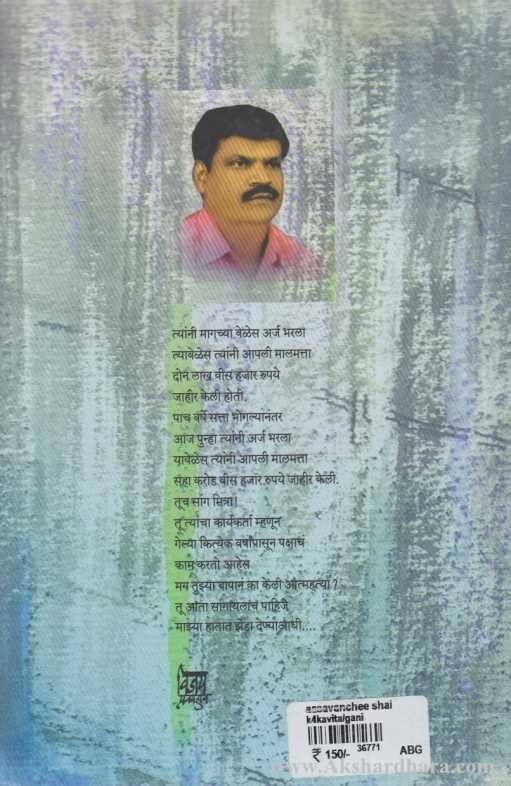 त्यांनी मागच्या वेळेस अर्ज भरला
त्यावेळेस त्यांनी आपली मालमत्ता
दोन लाख वीस हजार रुपये
जाहीर केली होती.
पाच वर्षे सत्ता भोगल्यानंतर
आज पुन्हा त्यांनी अर्ज भरला
यावेळेस त्यांनी आपली मालमत्ता
सहा करोड वीस हजार रुपये जाहीर केली.
तूच सांग मित्रा!
तू त्यांचा कार्यकर्ता म्हणून
गेल्या कित्येक वर्षांपासून पक्षाचं
काम करतो आहेस
मग तुझ्या बापानं का केली आत्महत्या ?
तू आता सांगायलाच पाहिजे
माझ्या हातात झेंडा देण्याआधी....
विजय
aasavanchee shai
k4kavita/gani
₹ 150/- 36771 ABG
www.Akshardhara.com